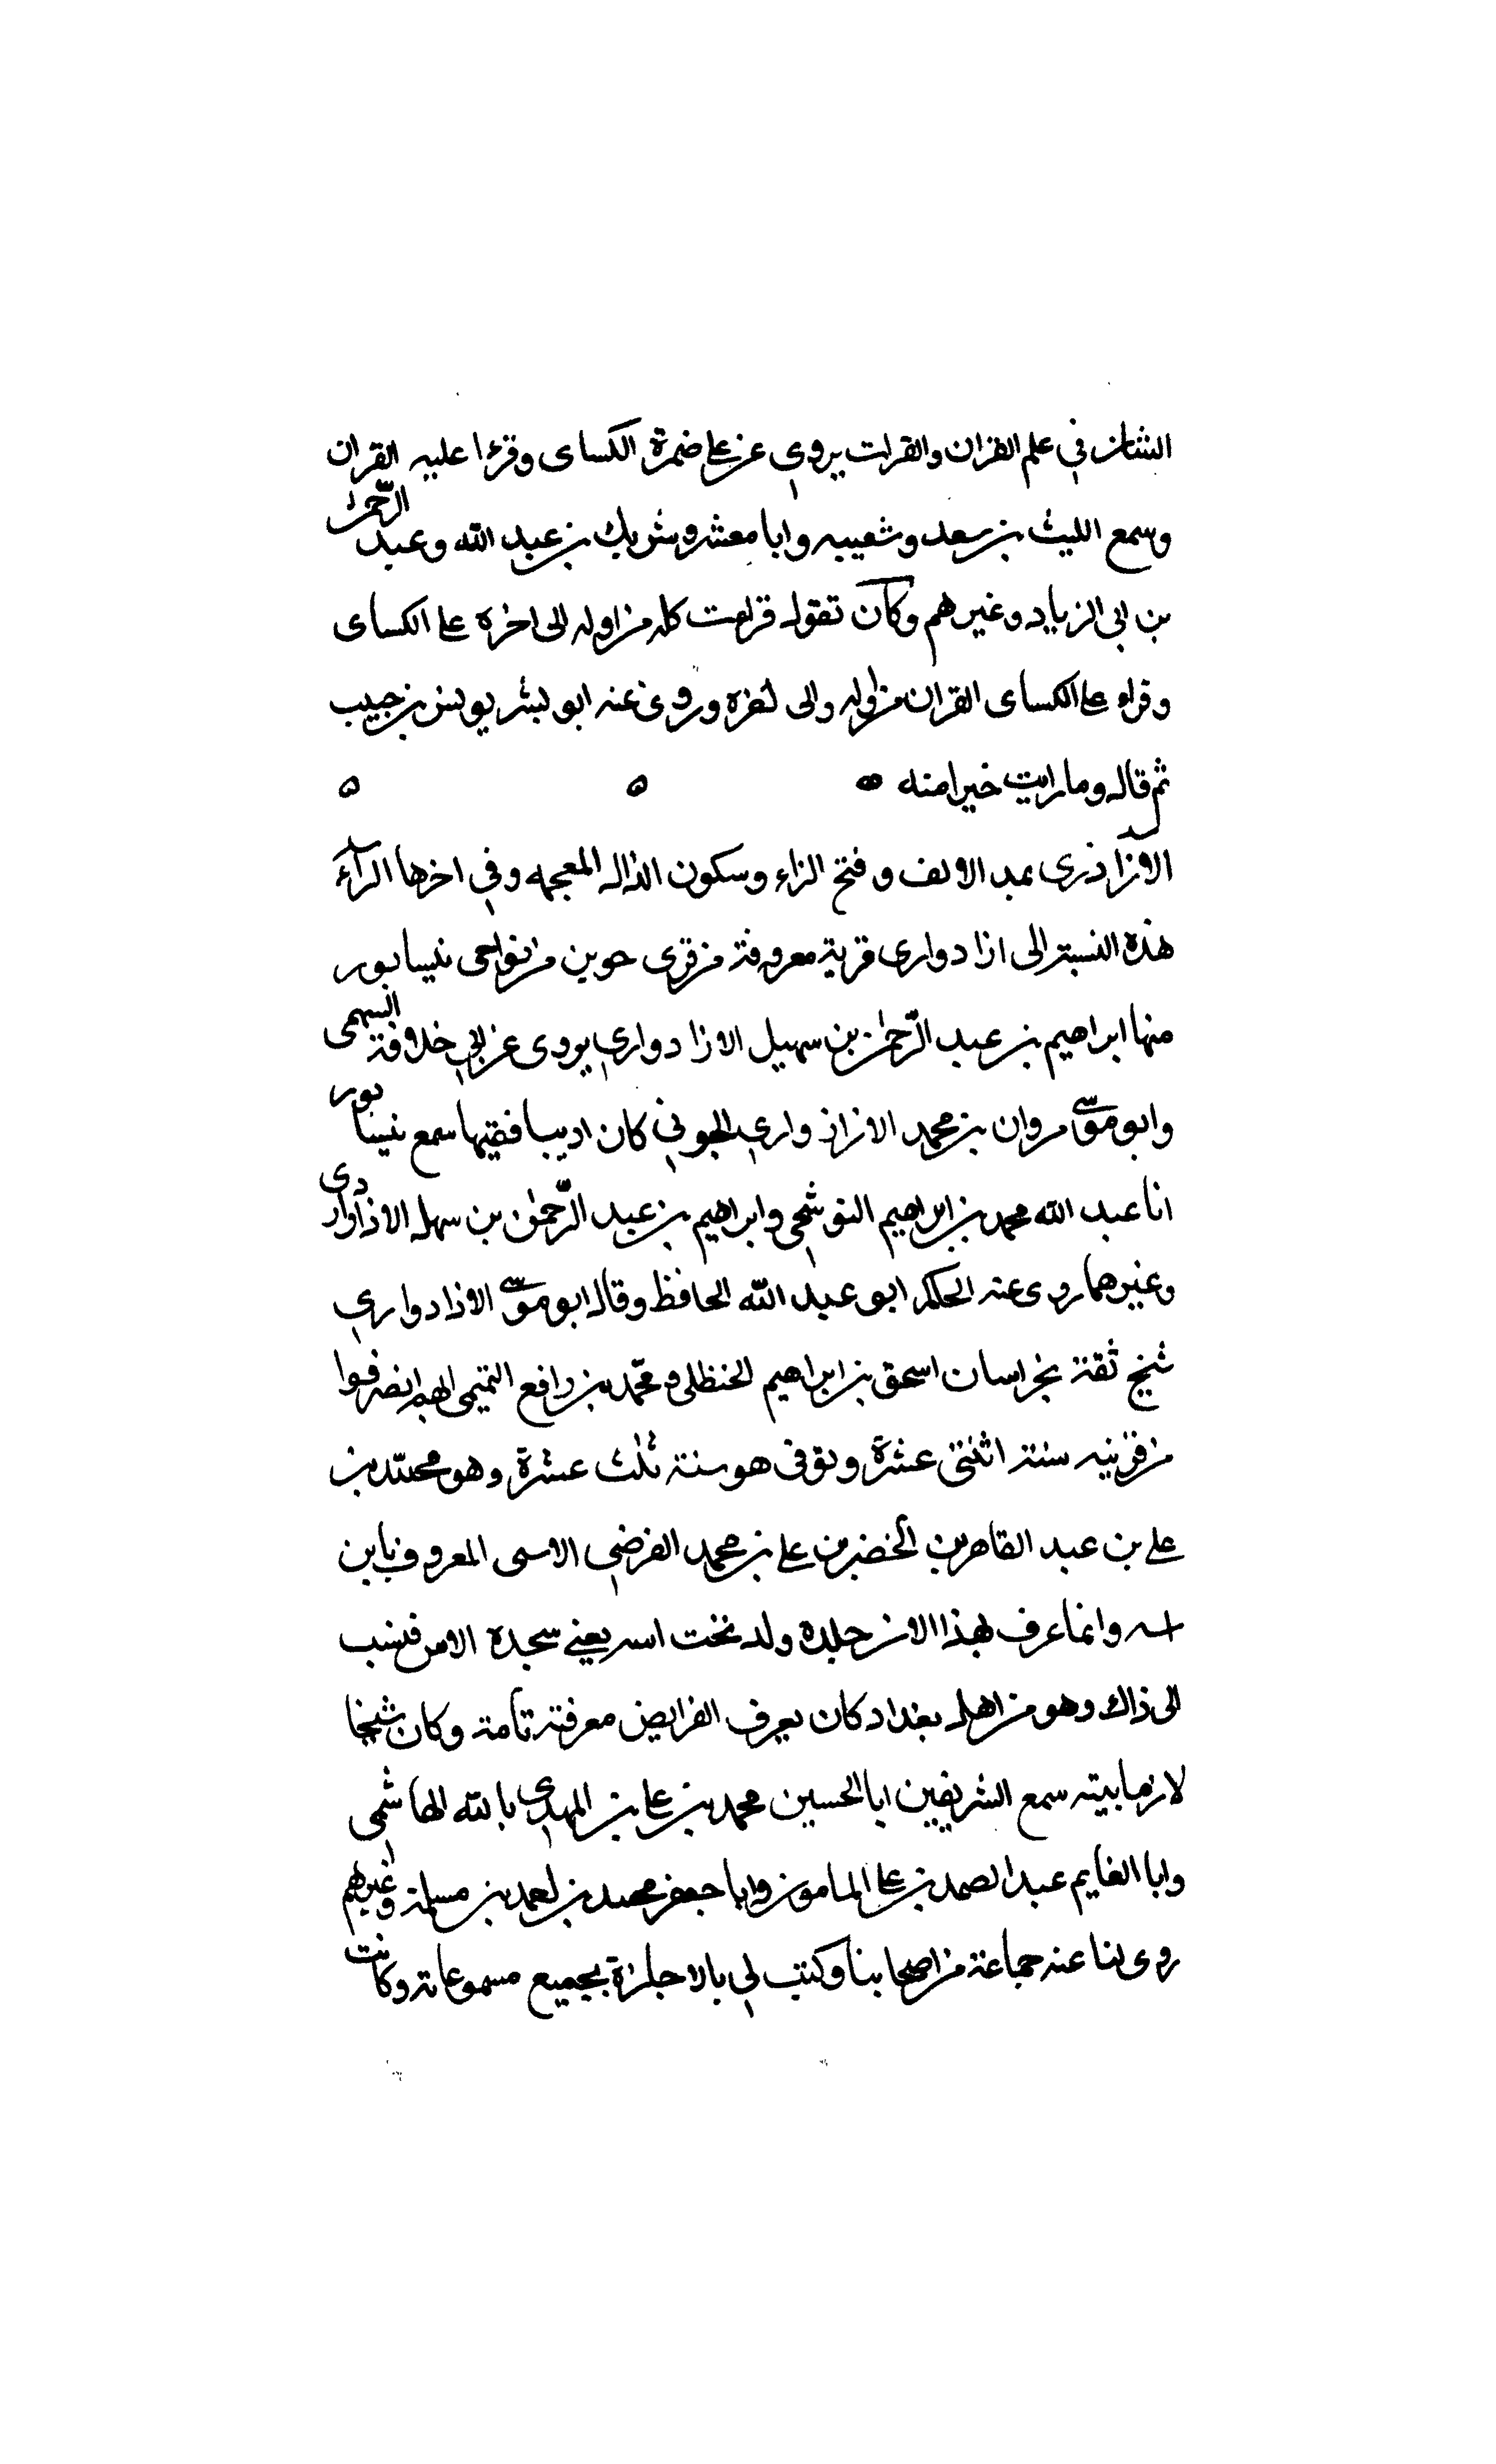 الشان في علم القران والقرات يروي عن علي ضمرة الكساى وقرءا عليه القران
وسمع الليث بن سعد وشعيبه وابا معشر وشريك بن عبد الله وعبد الرّحمن
بن ابى الزياد وغيرهم وكان تقول قراءت كله من اوله الى اخره على الكساى
وقراء على الكساى القران من اوله والى اخره وروى عنه ابو بشر يونس بن حبيب
ثم قال وما رايت خيرا منه ه ه ه
الازاذرى بمد الالف وفتح الزاء وسكون الذال المعجمه وفي اخرها الرآء
هذه النسبة الى ازا دوارى قرية معروفة من قرى جوين من نواحى نيسابور
منها ابراهيم بن عبد الرّحمن بن سهيل الازا دواري يروى عن ابي خلافة السهمى
وابو موسى مروان بن محمد الازاذ واري الجوني كان اديبا فقيها سمع بنيسابور
انا عبد الله محمد بن ابراهيم النوشجي وابراهيم بن عبد الرّحمن بن سهل الاذاواردى
وغيرهما روى عنه الحاكم ابو عبد الله الحافظ وقال ابو موسى الاذا دواري
شيخ ثقة بخراسان اسحق بن ابراهيم الحنظلى ومحّمد بن رافع التميمى انصرفوا
من سنة اثنتى عشرة وتوفى هو سنة ثلث عشرة وهو محمّد بن
على بن عبد القاهر بن الخضر بن على بن محمد الفرضي الاسى المعروف بابن
اسه وانما عرف بهذا الان جلدة ولد تحت اسه يعني سجدة الاس فنسب
الى ذاك وهو من اهل بغداد كان يعرف الفرايض معرفة تامة وكان شيخا
لازما بيته سمع الشريفين ابا الحسين محمد بن على بن المهدي بالله الهاشمى
وابا الغايم عبد الصمد بن على المامون وابا جعفر محمد بن احمد بن مسلمة وغيرهم
روى لنا عنه جماعة من اصحابنا وكتب لي بالاجازة بجميع مسموعاته وكانت